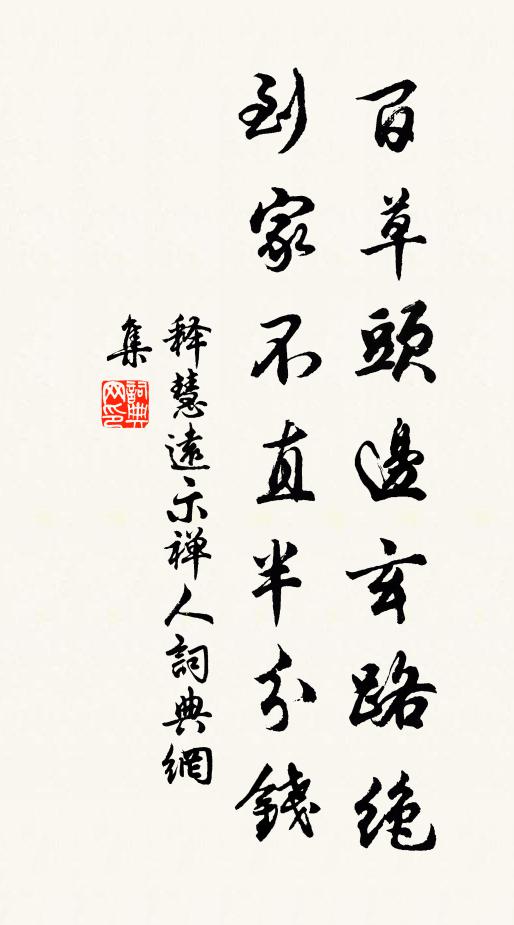 百草頭邊玄路絶
到家不直半分錢
释慧遠示禅人詞典網
集
詞典
网印